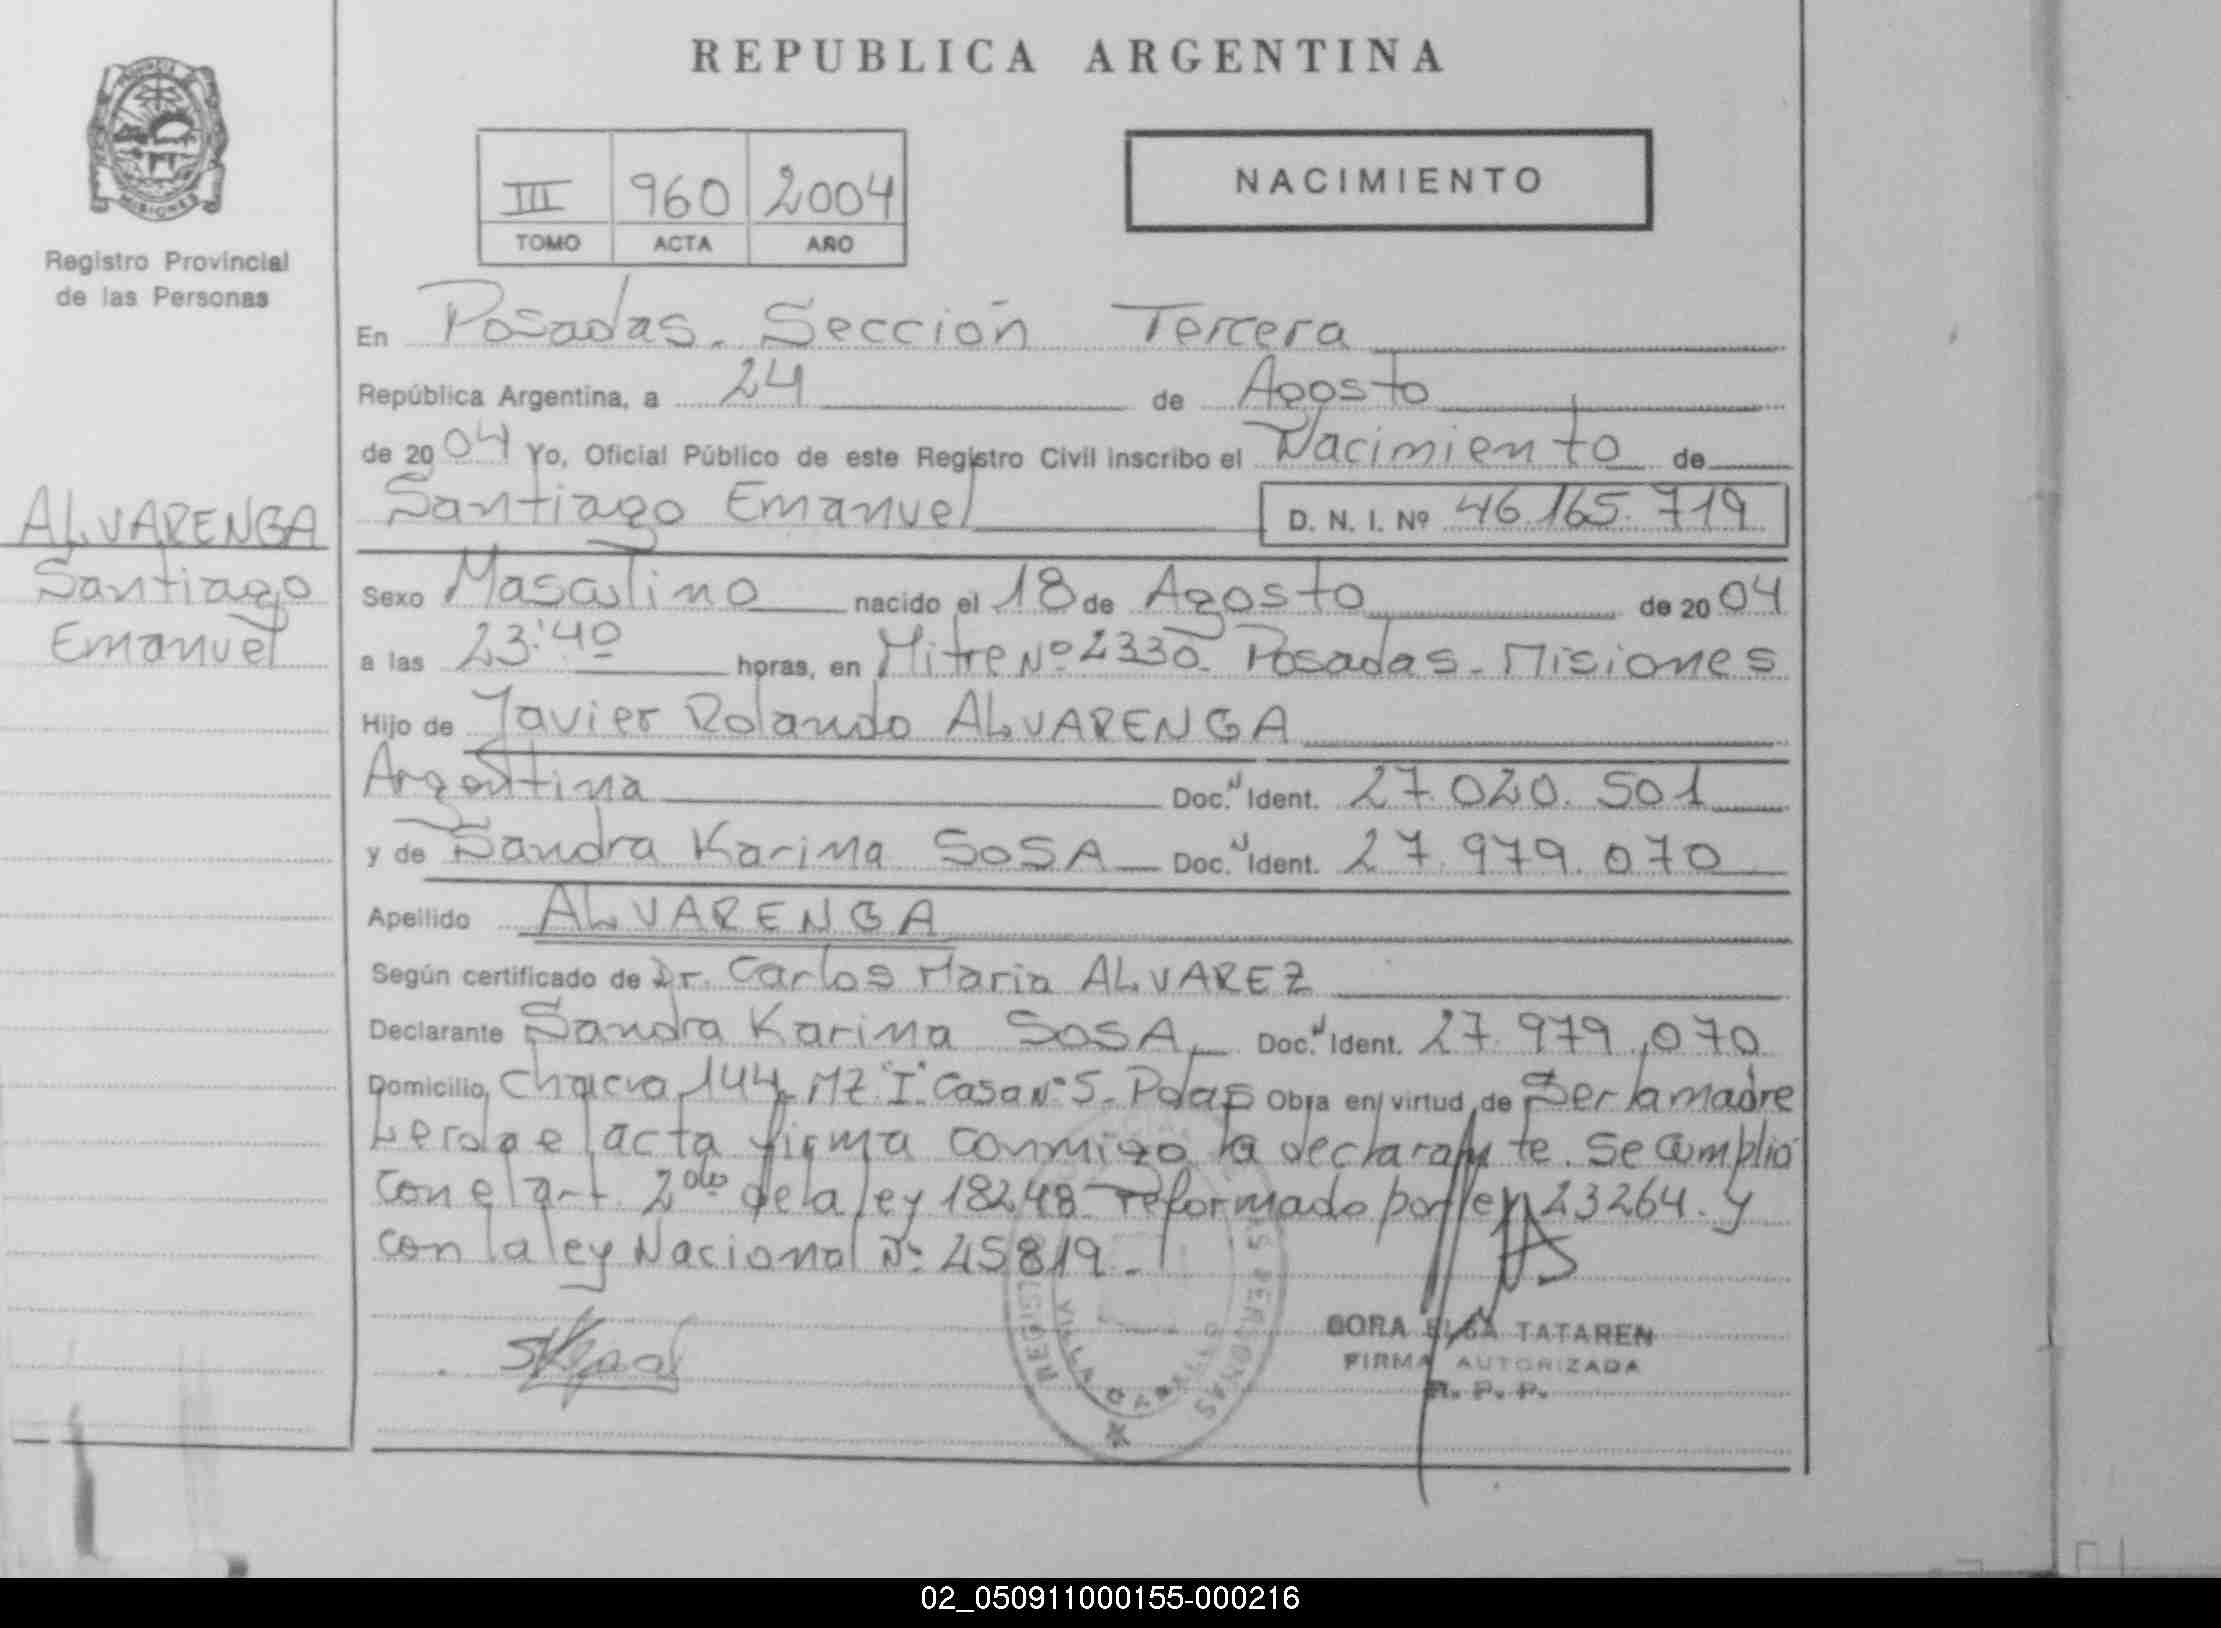 REPUBLICA ARGENTINA
PROVINCIA
MISIONES
Registro Provincial
de las Personas
III 960 2004
TOMO ACTA AÑO
NACIMIENTO
En Posadas. Sección Tercera
República Argentina, a 24 de Agosto
de 2004 Yo, Oficial Público de este Registro Civil inscribo el Nacimiento de
Santiago Emanuel D. N. I. Nº 46.165.719
ALVARENGA
Santiago
Emanuel
Sexo Masculino nacido el 18 de Agosto de 2004
a las 23:40 horas, en Mitre Nº 2330. Posadas - Misiones
Hijo de Javier Rolando ALVARENGA
Argentina Doc. N Ident. 27.020.501
y de Sandra Karina SOSA Doc. N Ident. 27.979.070
Apellido ALVARENGA
Según certificado de Dr. Carlos Maria ALVAREZ
Declarante Sandra Karina SOSA Doc. N Ident. 27.979.070
Domicilio Chacra 144 MZ "I" Casa Nº 5 - Pdas Obra en virtud de Ser la madre
Leida el acta firma conmigo la declarante. Se cumplio
con el art. 2do de la ley 18248 reformado por ley 23264. y
con la ley Nacional Nº 25819.-
REGIST PERSONAS
VILLA CABELLO
DORA ELSA TATAREN
FIRMA AUTORIZADA
R. P. P.
02_050911000155-000216